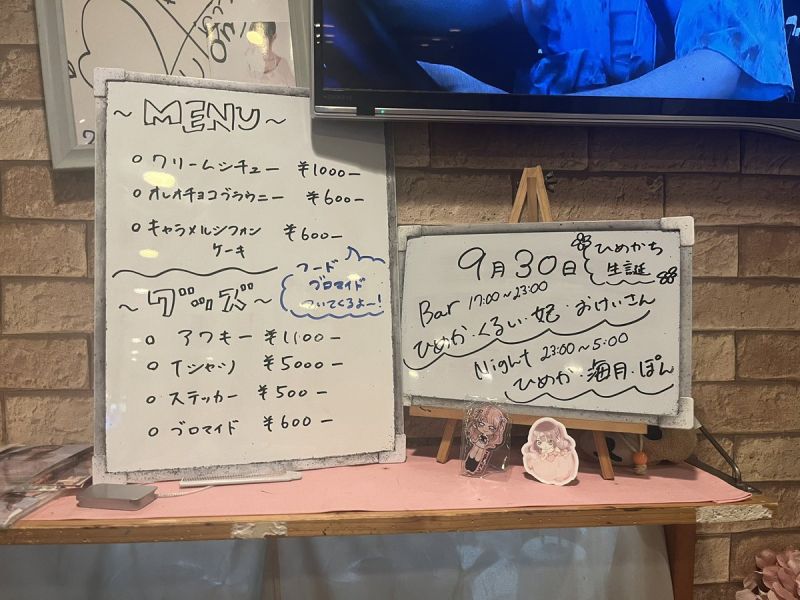 ~ MENU ~
○ クリームシチュー ¥1000-
○ オレオチョコブラウニー ¥600-
○ キャラメルシフォン
ケーキ ¥600-
フード
ブロマイド
ついてくるよー!
~ グッズ ~
○ アクキー ¥1100-
○ Tシャツ ¥5000-
○ ステッカー ¥500-
○ ブロマイド ¥600-
9月30日
ひめかち
生誕
Bar 17:00~23:00
ひめか・くるい・妃・おけいさん
Night 23:00~5:00
ひめか・海月・ぽん